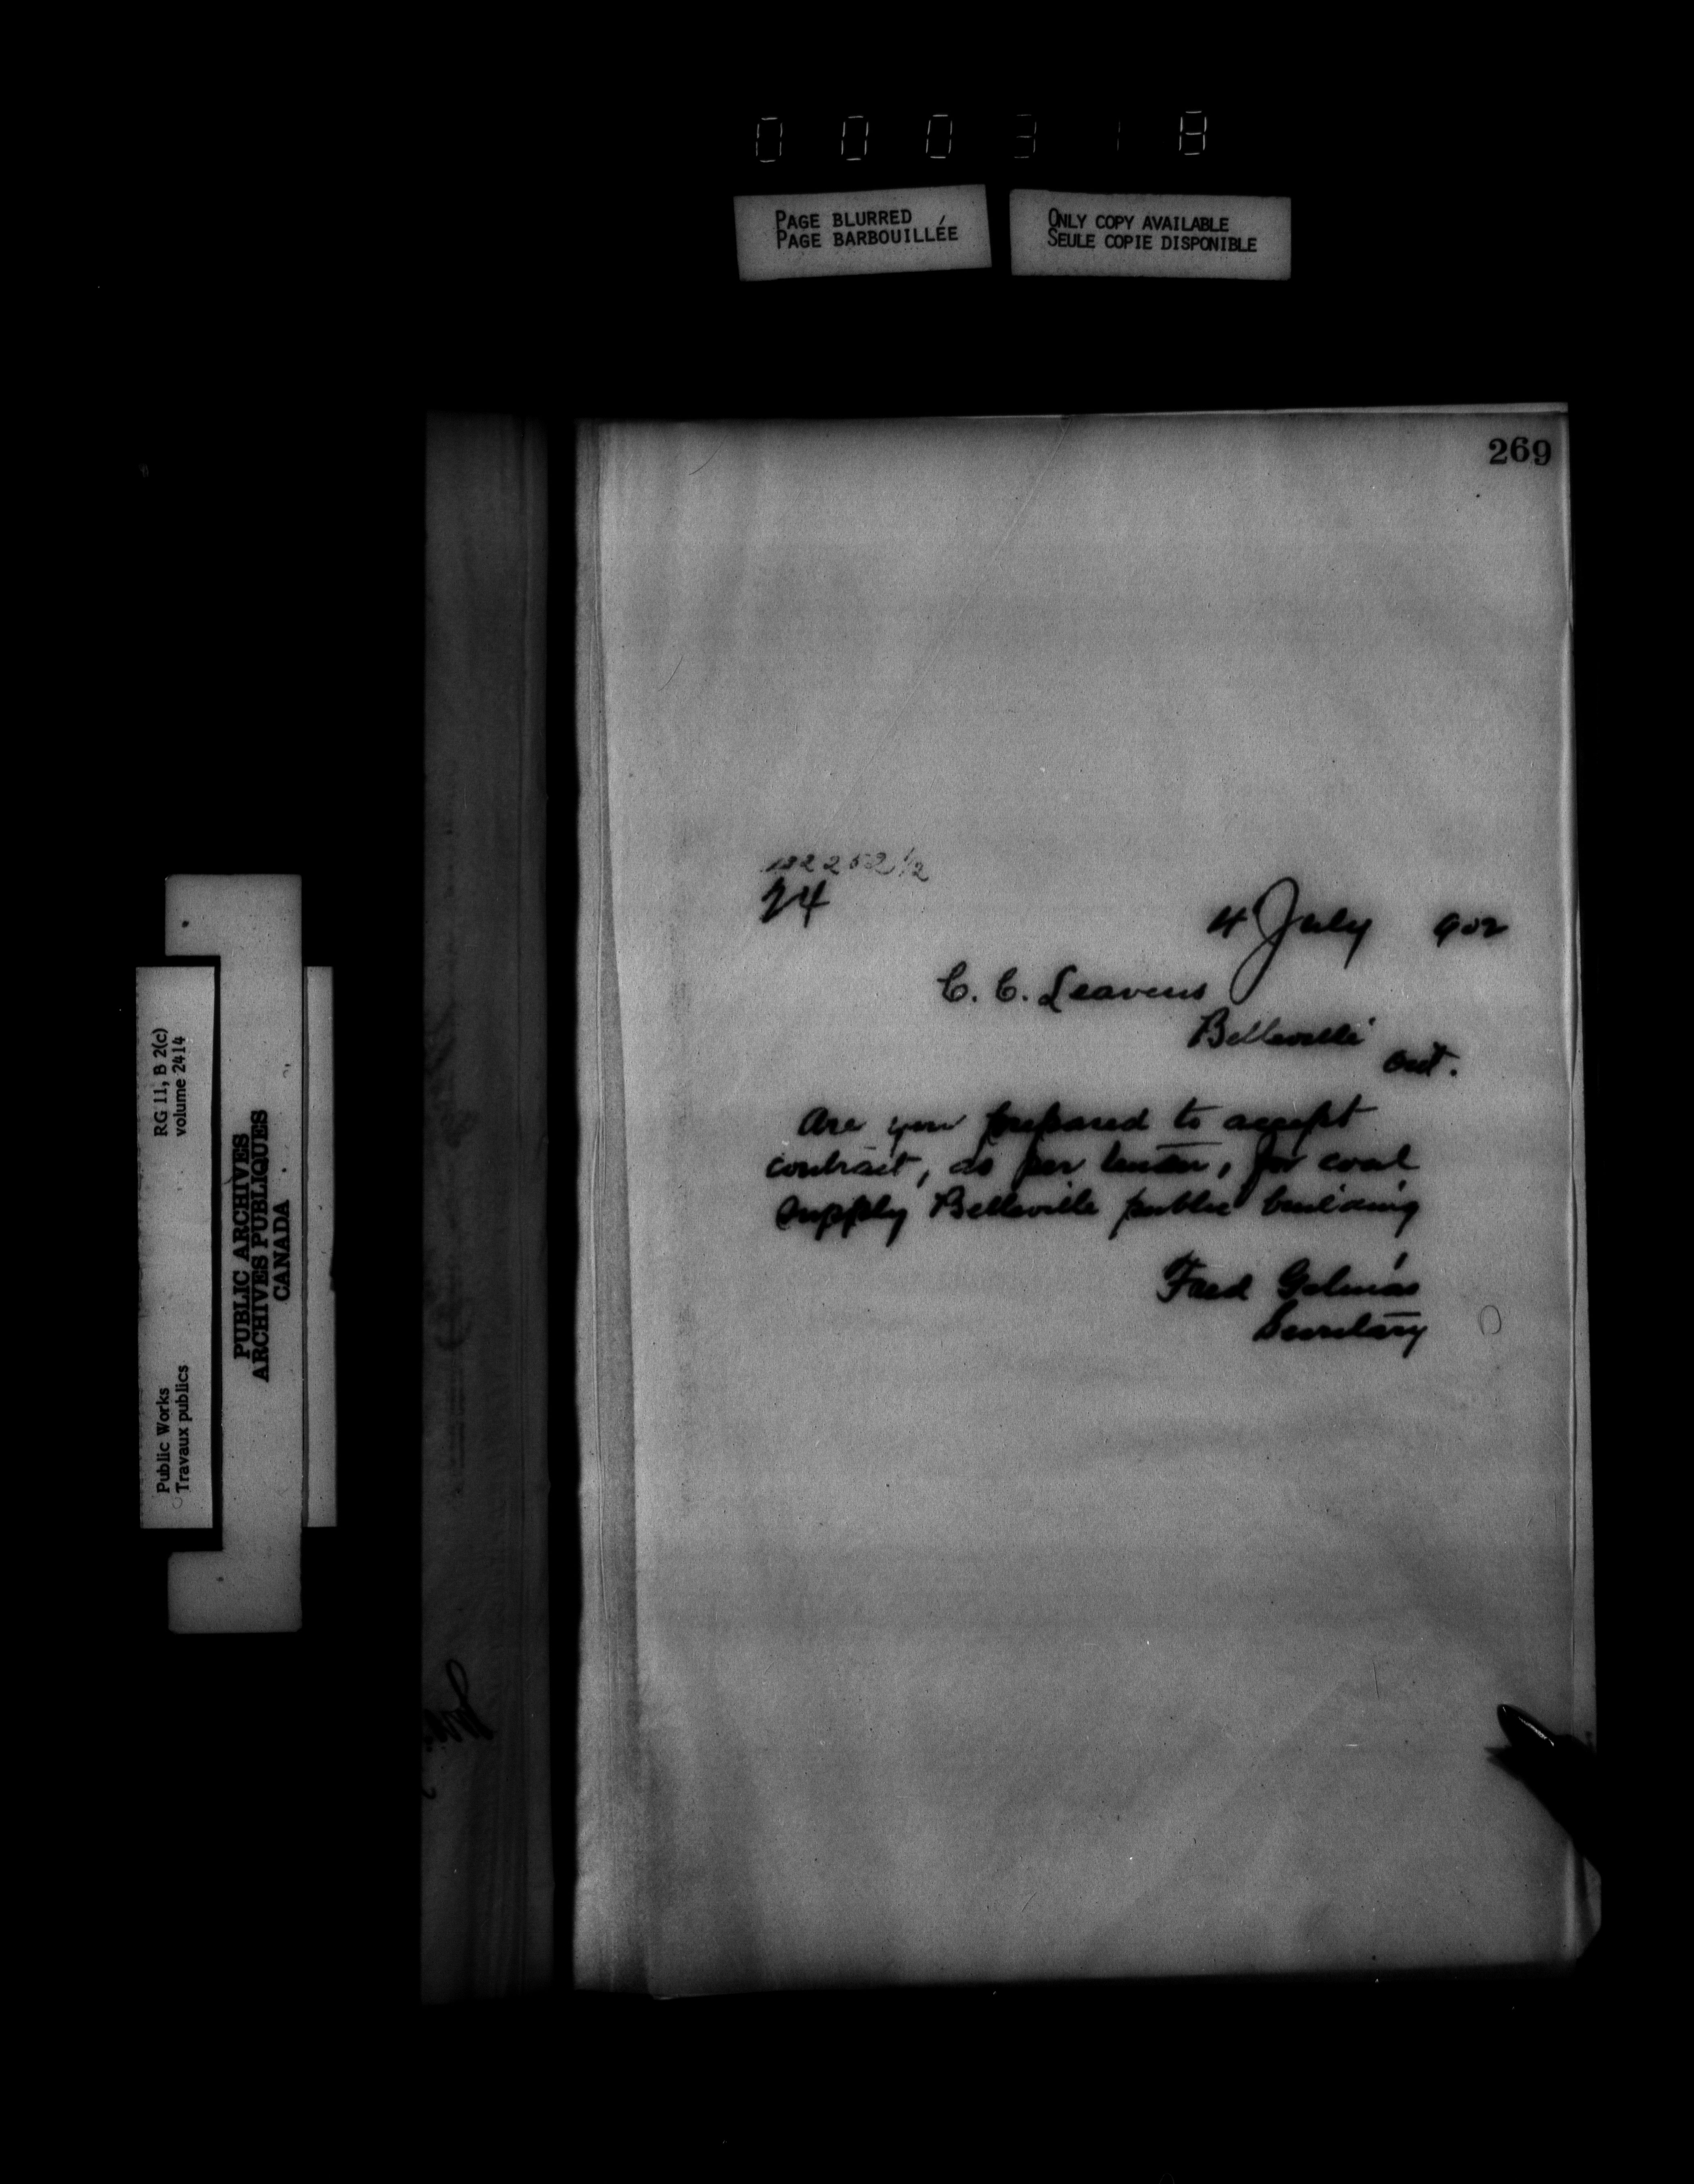 000318
PAGE BLURRED
PAGE BARBOUILLÉE
ONLY COPY AVAILABLE
SEULE COPIE DISPONIBLE
269
122252 1/2
24
4 July 902
C. C. Leavens
Belleville
Ont.
Are you prepared to accept
contract, as per tender, for coal
supply Belleville public building
Fred Gélinas
Secretary
RG 11, B 2(c)
volume 2414
Public Works
Travaux publics
PUBLIC ARCHIVES
ARCHIVES PUBLIQUES
CANADA